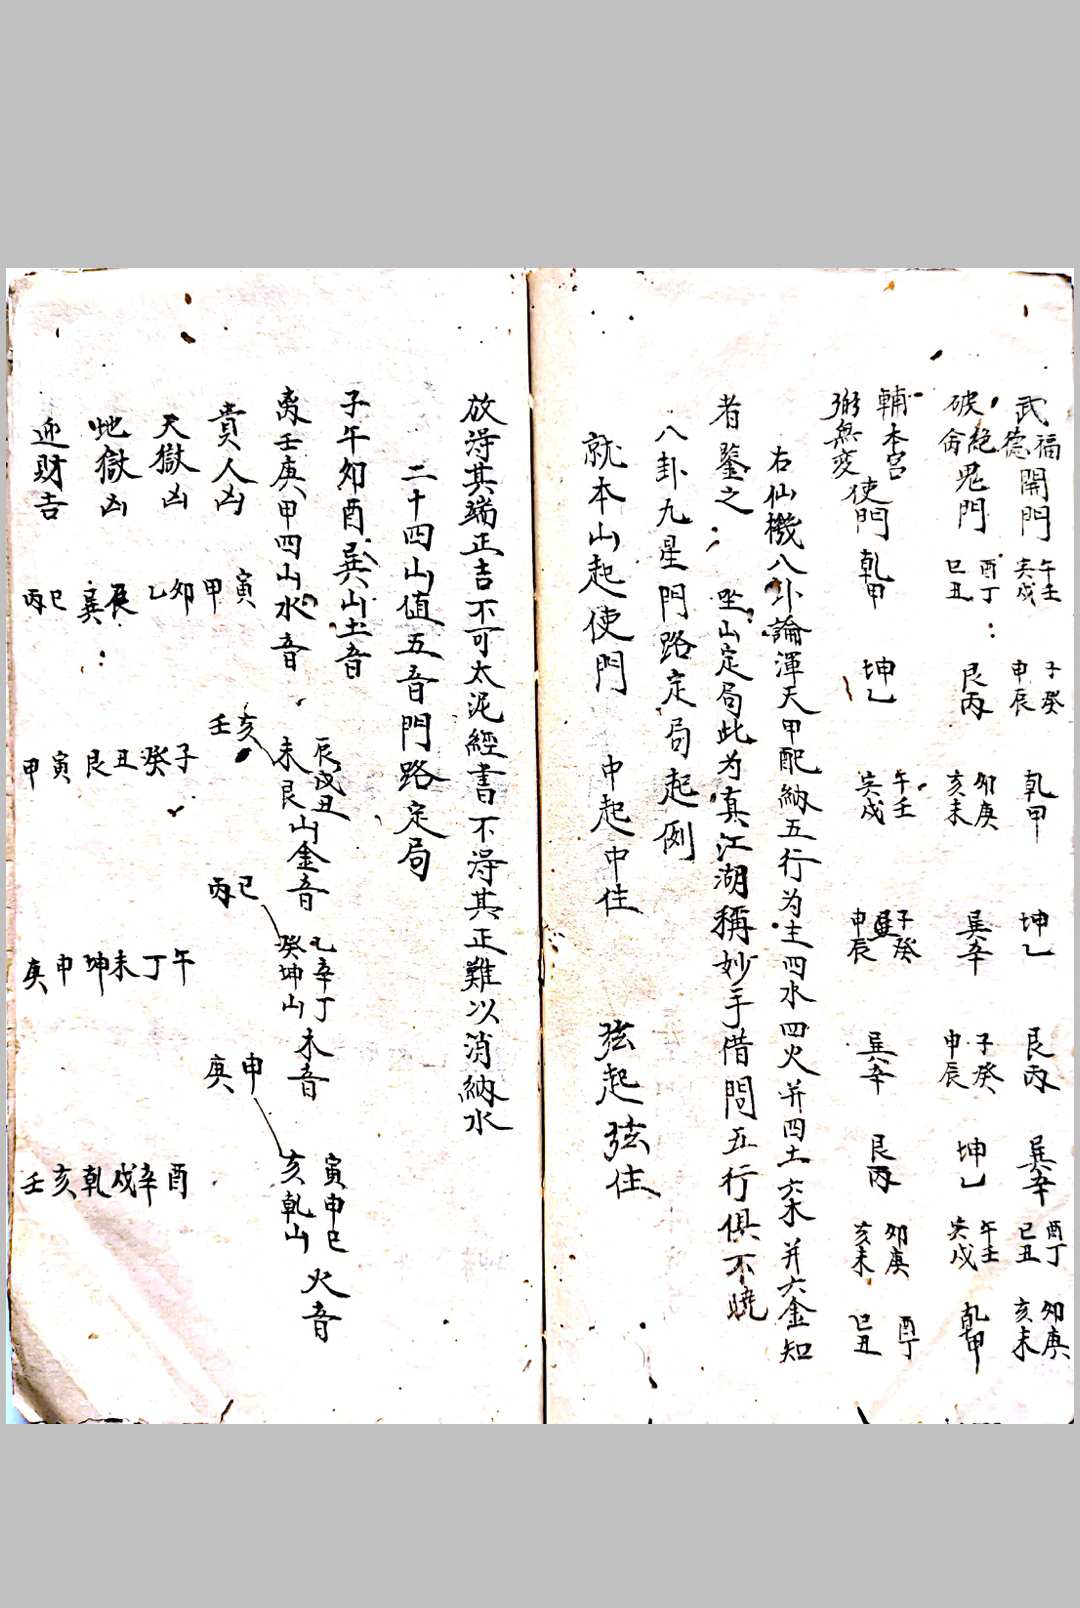 武 福德 開門 午壬寅戌 子癸申辰 乾甲 坤乙 艮丙 巽辛 酉丁巳丑 卯庚亥未
破 絕命 鬼門 酉丁巳丑 艮丙 卯庚亥未 巽辛 子癸申辰 坤乙 午壬寅戌 乾甲
輔 本宮
弼 無变 使門 乾甲 坤乙 午壬寅戌 子癸申辰 巽辛 艮丙 卯庚亥未 酉丁巳丑
右仙機八卦論渾天甲配納五行为主四水四火并四土六木并六金知
者鑒之 坐山定局此为真江湖稱妙手借問五行俱不曉
八卦九星門路定局起例
就本山起使門 中起中住 弦起弦住
放淂其端正吉不可太泥經書不淂其正難以消納水
二十四山值五音門路定局
子午卯酉巽山土音
离壬庚甲四山水音 辰戌丑未艮山金音 乙辛丁癸坤山木音 寅申巳亥乾山火音
貴人凶 寅甲 壬亥 丙巳 庚申
天獄凶 卯乙 子癸 午丁 酉辛
地獄凶 辰巽 丑艮 未坤 戌乾
迎財吉 巳丙 寅甲 申庚 亥壬